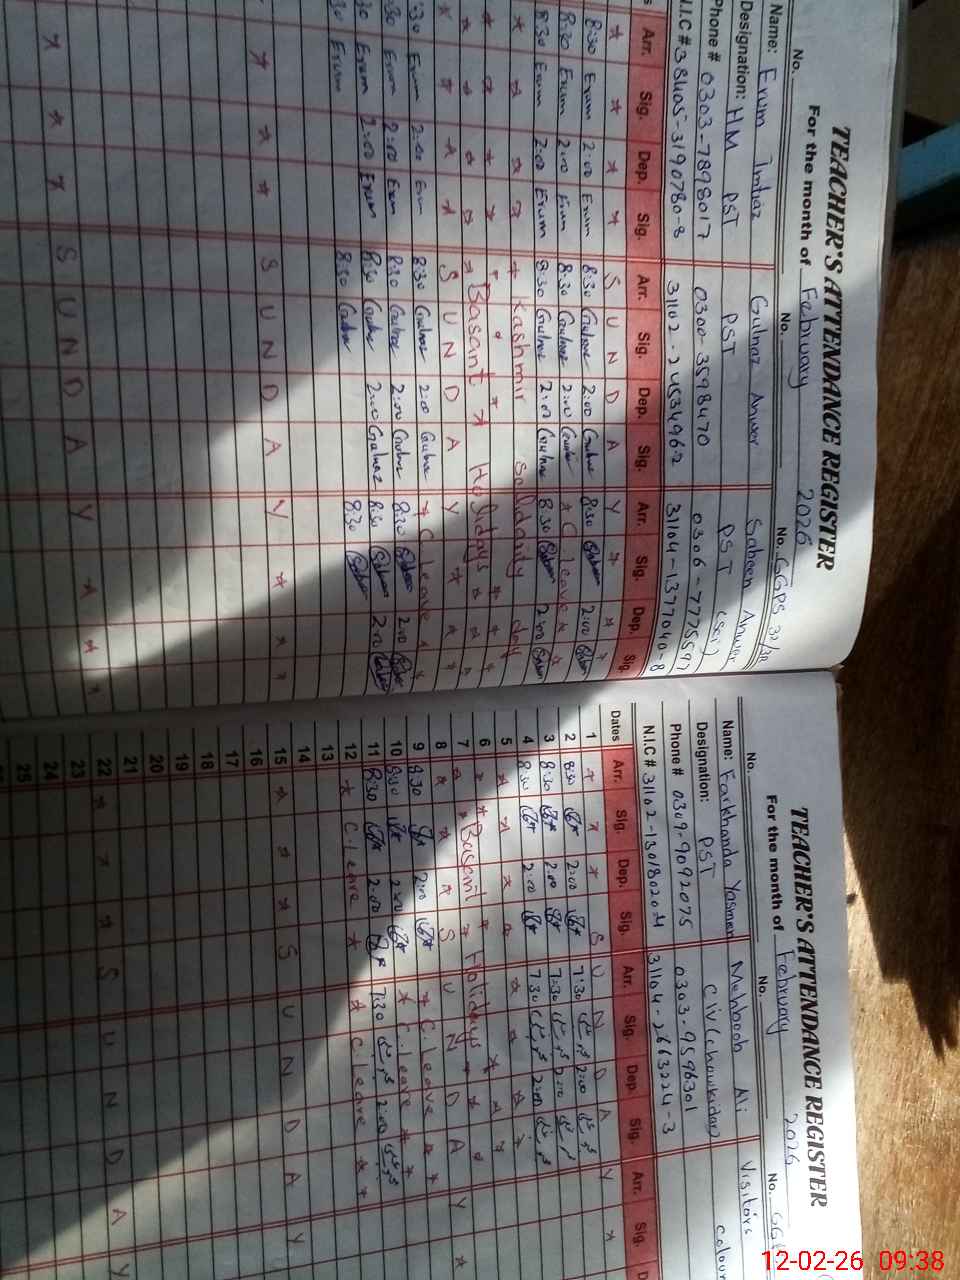 TEACHER'S ATTENDANCE REGISTER
For the month of February 2026
No. No. No. GGPS 32/3R
Name: Erum Imtiaz Gulnaz Anwer Sabeen Anwer
Designation: HM PST PST PST (SEI)
Phone # 0303-7898017 0300-3598470 0306-7775597
N.I.C # 38405-3190780-8 31102-2453496-2 31104-1377040-8
Arr. Sig. Dep. Sig. Arr. Sig. Dep. Sig. Arr. Sig. Dep. Sig.
* * * * S U N D A Y * * *
8:30 Erum 2:00 Erum 8:30 Gulnaz 2:00 Gulnaz 8:30 Sabeen 2:00 Sabeen
8:30 Erum 2:00 Erum 8:30 Gulnaz 2:00 Gulnaz * C leave *
8:30 Erum 2:00 Erum 8:30 Gulnaz 2:00 Gulnaz 8:30 Sabeen 2:00 Sabeen
* * * * * Kashmir Solidarity day
* * * * * * * * *
* * * * * Basant * Holidays * * *
* * * * S U N D A Y * * *
8:30 Erum 2:00 Erum 8:30 Gulnaz 2:00 Gulnaz * C leave * *
8:30 Erum 2:00 Erum 8:30 Gulnaz 2:00 Gulnaz 8:30 Sabeen 2:00 Sabeen
8:30 Erum 2:00 Erum 8:30 Gulnaz 2:00 Gulnaz 8:30 Sabeen 2:00 Sabeen
8:30 Erum 8:30 Gulnaz 8:30 Sabeen
* * * S U N D A Y * * *
* * * S U N D A Y * * *
TEACHER'S ATTENDANCE REGISTER
For the month of February 2026
No. No. No.
Name: Farkhanda Yasmen Mehboob Ali Visitors
Designation: PST CIV (chowkidar) colour
Phone # 0309-9092075 0303-9596301
N.I.C # 31102-1301802-4 31104-2663224-3
Dates Arr. Sig. Dep. Sig. Arr. Sig. Dep. Sig. Arr. Sig.
1 * * * S U N D A Y *
2 8:30 2:00 7:30 2:00
3 8:30 2:00 7:30 2:00
4 8:30 2:00 7:30 2:00
5 * * * * * * * *
6 * * * * * * * *
7 * * Basant * * Holidays * * *
8 * * * S U N D A Y *
9 8:30 2:00 * C.leave * *
10 8:30 2:00 * C.leave * *
11 8:30 2:00 7:30 2:00
12 * C.leave * * C.leave * *
13
14
15 * * * S U N D A Y
16
17
18
19
20
21
22 * * * S U N D A Y
23
24
25
12-02-26 09:38